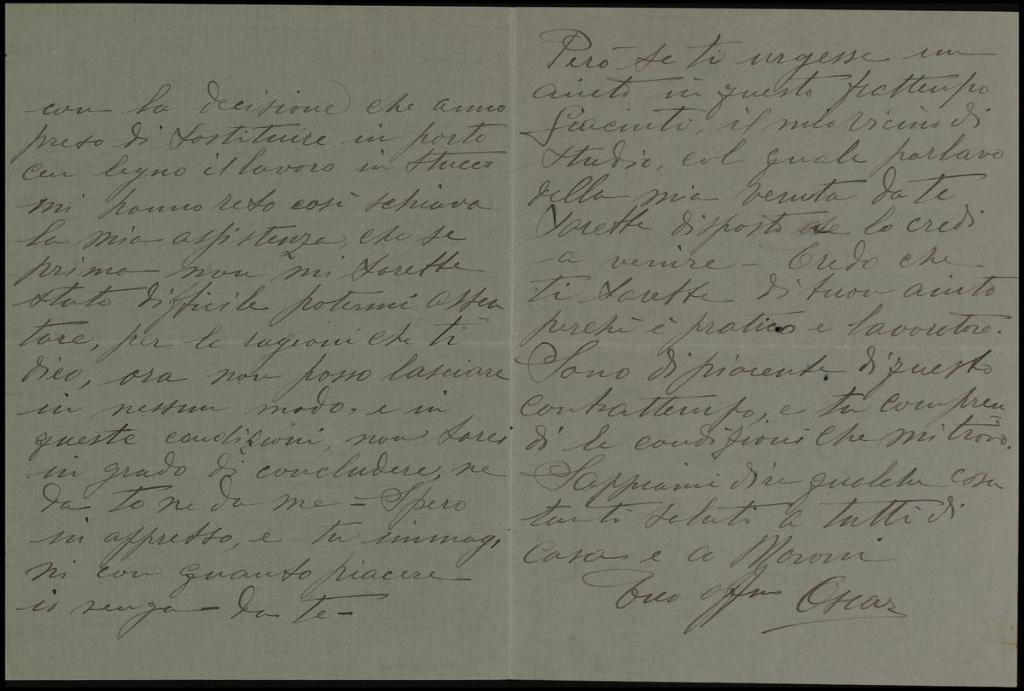 con la decisione che anno
preso di sostituire in parte
con legno il lavoro in stucco
mi hanno reso così schiava
la mia assistenza, che se
prima non mi sarebbe
stato difficile potermi assen
tare, per le ragioni che ti
dico, ora non posso lasciare
in nessun modo, e in
queste condizioni, non sarei
in grado di concludere, ne
da te ne da me = Spero
in appresso, e tu immagi
ni con quanto piacere
io venga da te =
Però se ti urgesse un
aiuto in questo frattempo
Giacinti, il mio vicino di
studio, col quale parlavo
della mia venuta da te
sarebbe disposto se lo credi
a venire = Credo che
ti sarebbe di buon aiuto
perchè è pratico e lavoratore.
Sono dispiacente di questo
contrattempo, e tu compren
di le condizioni che mi trovo.
Sappiami dire qualche cosa
tanti saluti a tutti di
casa e a Moroni
Tuo affmo Oscar